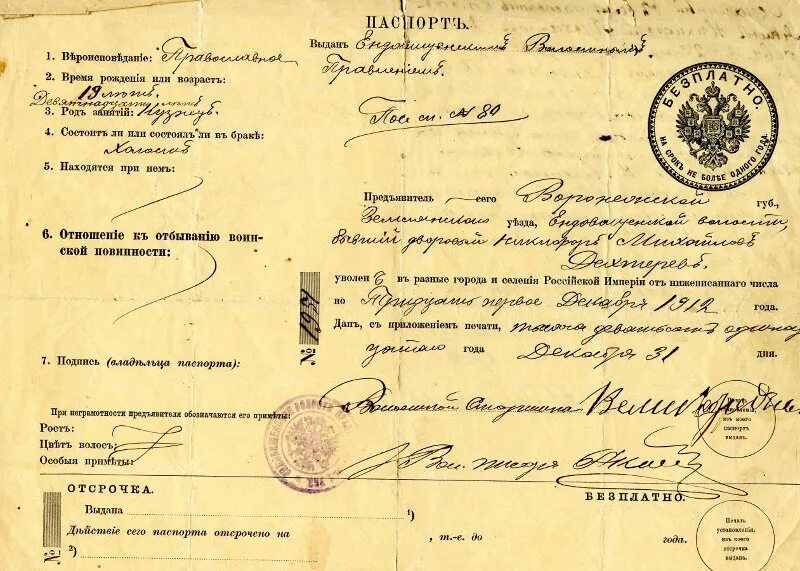 ПАСПОРТЪ.
1. Вѣроисповѣданіе: Православное
2. Время рожденія или возрастъ:
19 лѣтъ
Девятнадцати лѣтъ
3. Родъ занятій: Кузнецъ
4. Состоитъ ли или состоялъ ли въ бракѣ:
Холостъ
5. Находятся при немъ:
6. Отношеніе къ отбыванію воин-
ской повинности:
7. Подпись (владѣльца паспорта):
При неграмотности предъявителя обозначаются его примѣты:
Ростъ:
Цвѣтъ волосъ:
Особыя примѣты:
Выданъ Ендовищенскимъ Волостнымъ
Правленіемъ
№ 80
БЕЗПЛАТНО.
НА СРОКЪ НЕ БОЛѢЕ ОДНОГО ГОДА.
Предъявитель сего Воронежской губ.,
Землянскаго уѣзда, Ендовищенской волости,
бывшій дворовый Никифоръ Михайловъ
Дехтеревъ.
уволенъ въ разные города и селенія Россійской Имперіи отъ нижеписаннаго числа
по Тридцать первое Декабря 1912 года.
Данъ, съ приложеніемъ печати, тысяча девятьсотъ одинад
цатаго года Декабря 31 дня.
№ 1931
Волостной Старшина
Вол. писарь
изъ коего
паспортъ
выданъ.
БЕЗПЛАТНО.
ОТСРОЧКА.
Выдана 1)
Дѣйствіе сего паспорта отсрочено на
2) , т.-е. до года.
№
Печать
установленія,
изъ коего
отсрочка
выдана.